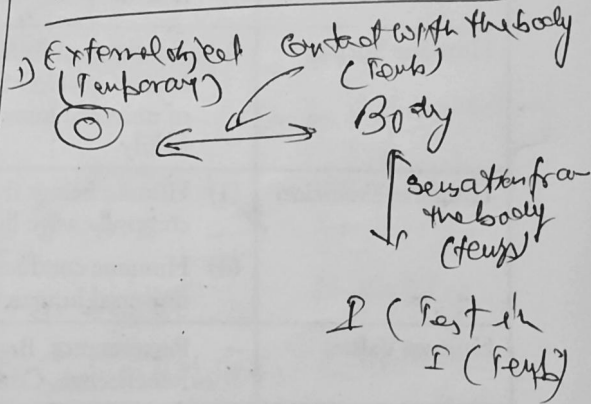 1) External object
(Temporary)
Contact with the body
(Temb)
Body
Sensation from
the body
(temp)
I (Test in
I (Temb)